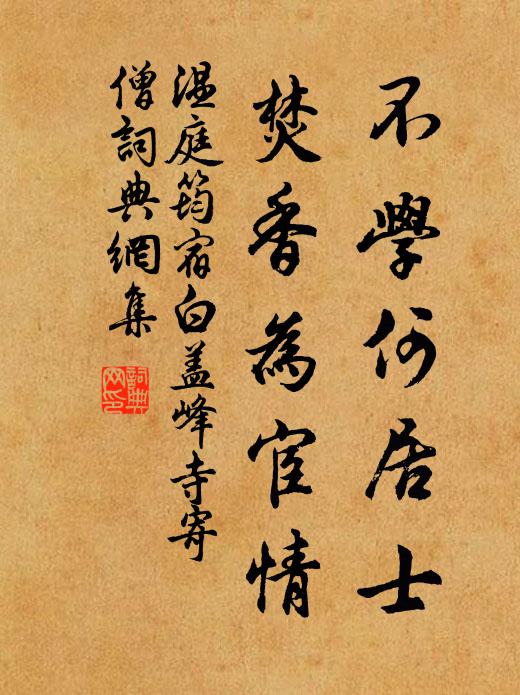 不學何居士
焚香為宦情
温庭筠宿白盖峰寺寄
僧詞典網集
詞典
网印